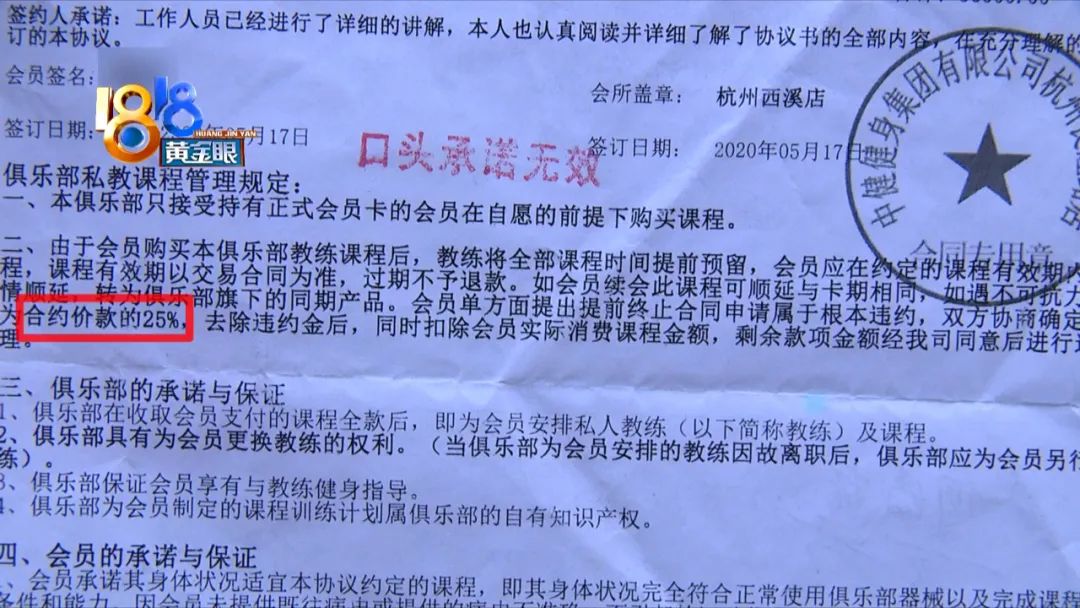 签约人承诺：工作人员已经进行了详细的讲解，本人也认真阅读并详细了解了协议书的全部内容，在充分理解的
订的本协议。
会员签名：
会所盖章： 杭州西溪店
签订日期： 月17日
签订日期： 2020年05月17日
1818
HUANG JIN YAN
黄金眼
口头承诺无效
中健健身集团有限公司杭州
合同专用章
俱乐部私教课程管理规定：
一、本俱乐部只接受持有正式会员卡的会员在自愿的前提下购买课程。
二、由于会员购买本俱乐部教练课程后，教练将全部课程时间提前预留，会员应在约定的课程有效期内
程，课程有效期以交易合同为准，过期不予退款。如会员续会此课程可顺延与卡期相同，如遇不可抗力
情顺延，转为俱乐部旗下的同期产品。会员单方面提出提前终止合同申请属于根本违约，双方协商确定
为合约价款的25%，去除违约金后，同时扣除会员实际消费课程金额，剩余款项金额经我司同意后进行
理。
三、俱乐部的承诺与保证
1、俱乐部在收取会员支付的课程全款后，即为会员安排私人教练（以下简称教练）及课程。
2、俱乐部具有为会员更换教练的权利。（当俱乐部为会员安排的教练因故离职后，俱乐部应为会员另行
练）。
3、俱乐部保证会员享有与教练健身指导。
4、俱乐部为会员制定的课程训练计划属俱乐部的自有知识产权。
四、会员的承诺与保证
、会员承诺其身体状况适宜本协议约定的课程，即其身体状况完全符合正常使用俱乐部器械以及完成课程
条件和能力。因会员未提供既往病史或提供的病史不准确